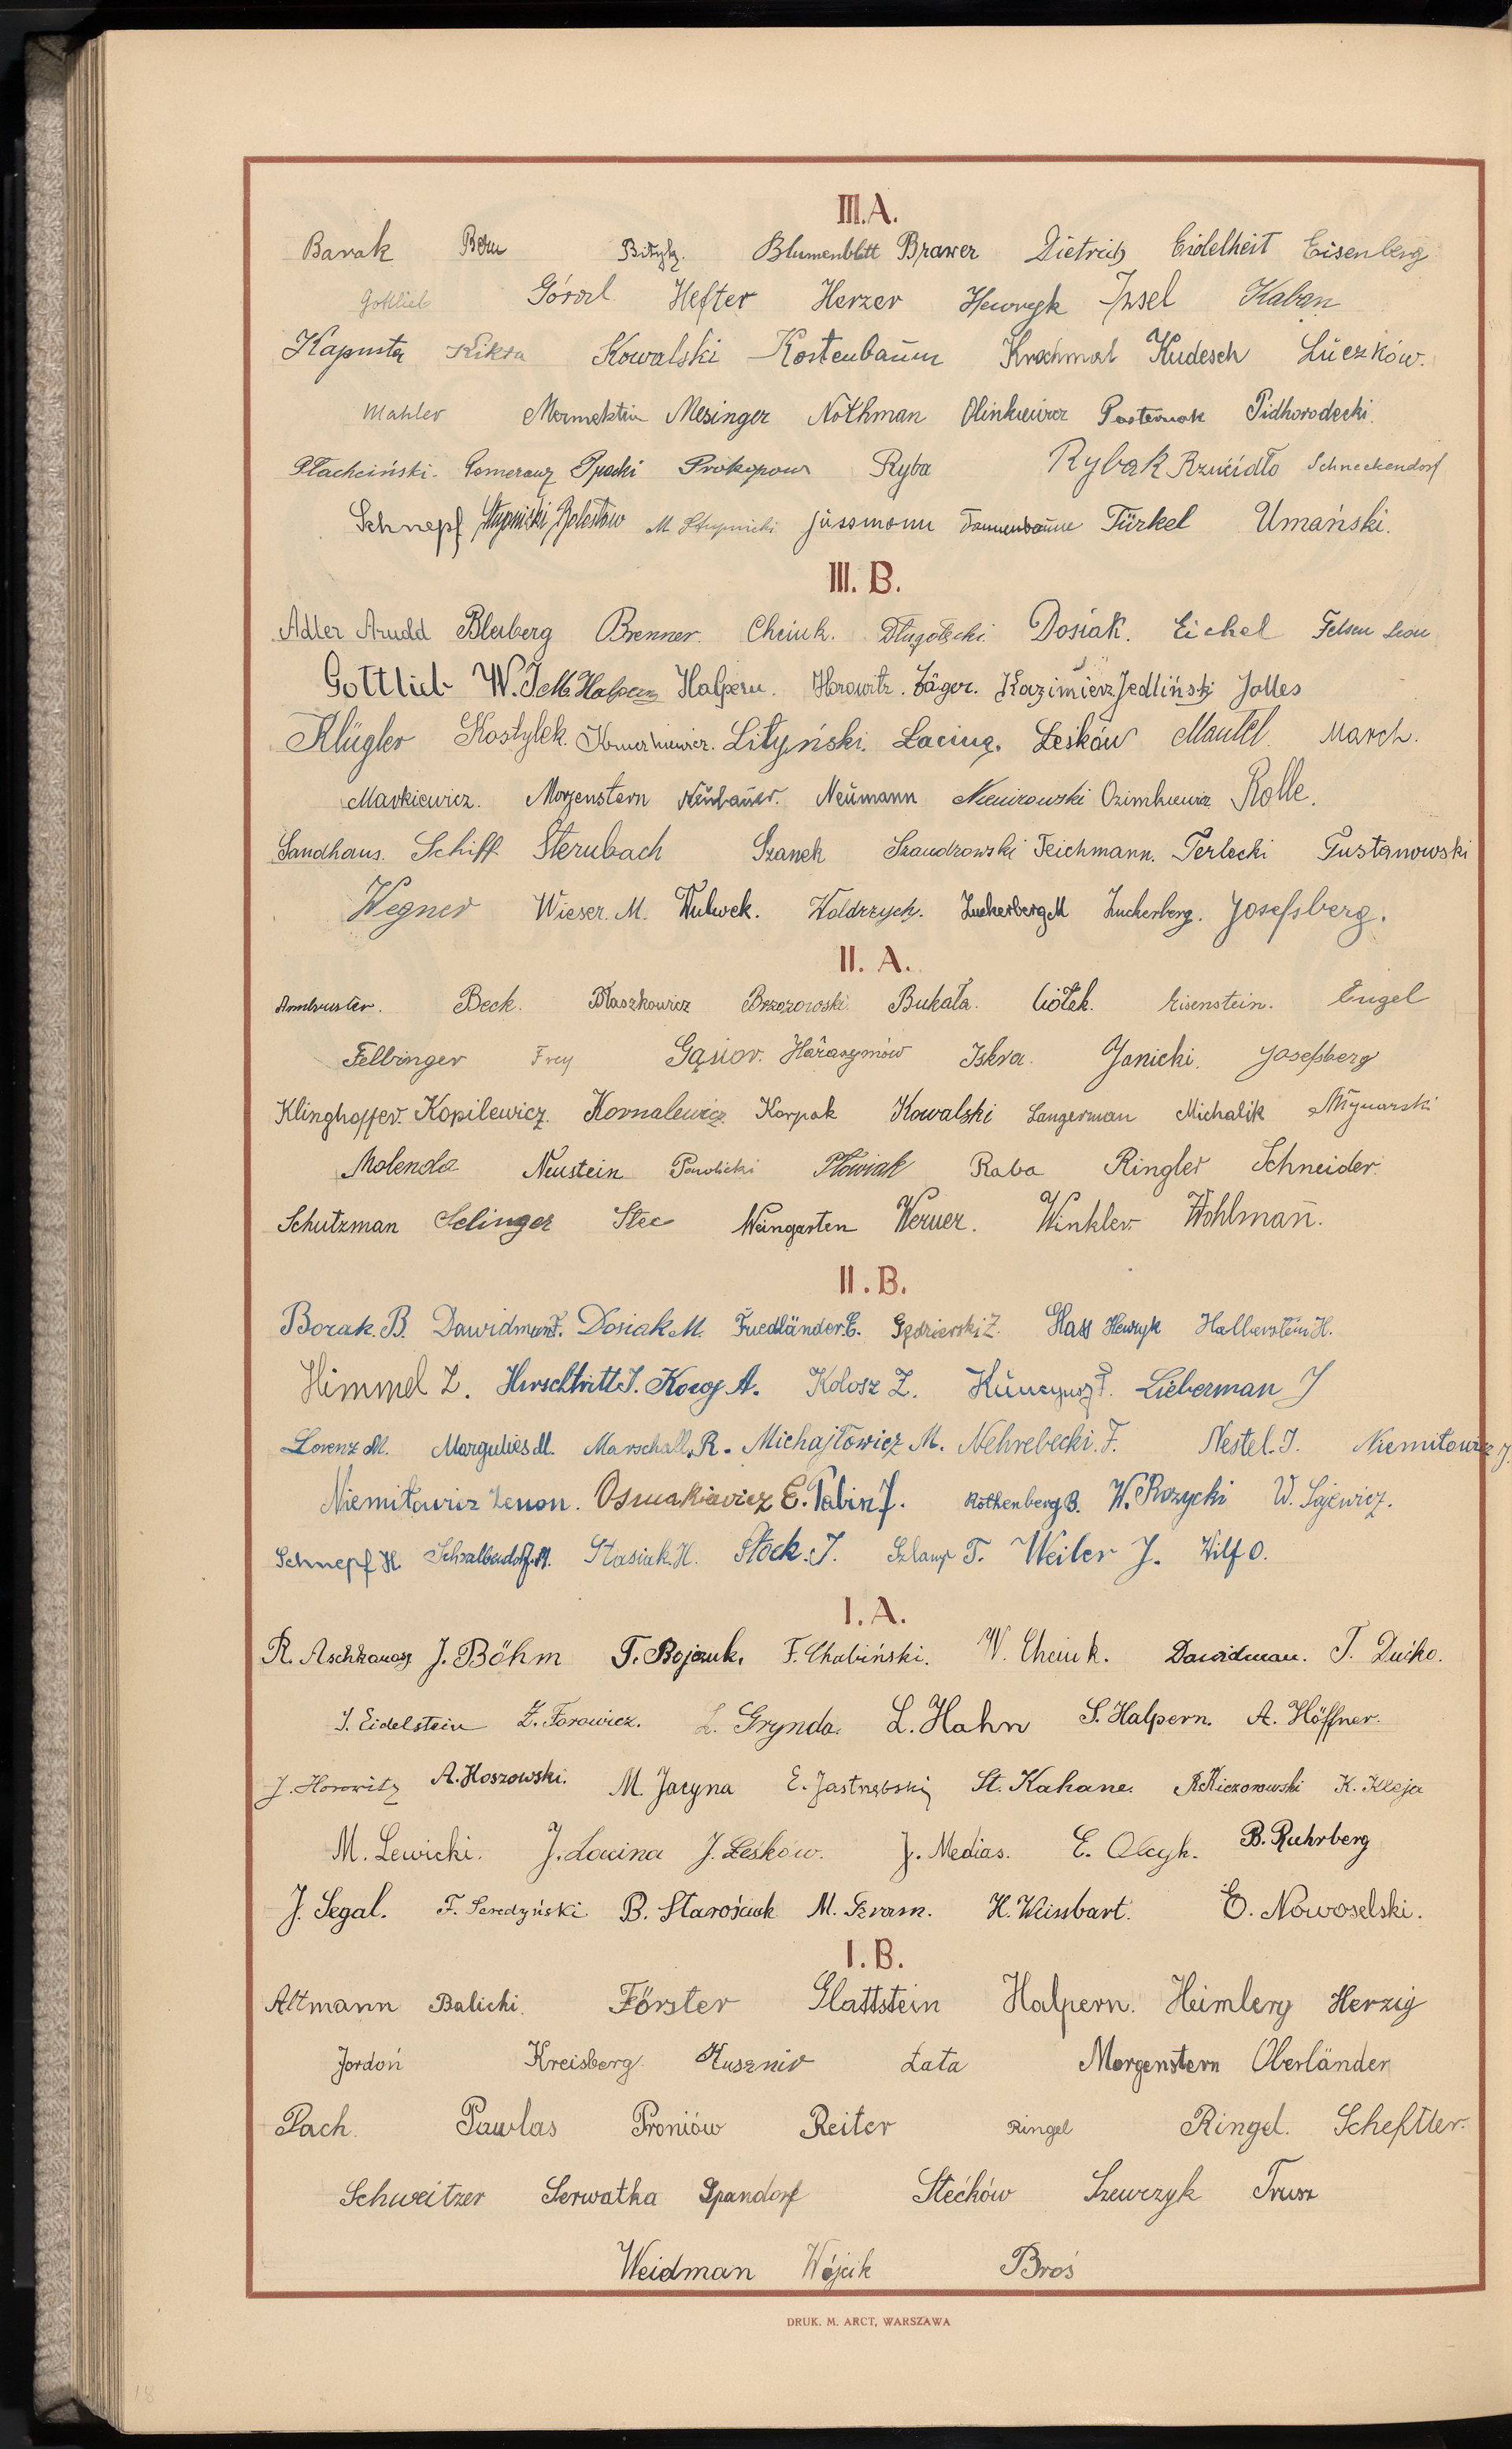 III.A.
Barak Bem Bityły. Blumenblatt Brawer Dietrich Eidelheit Eisenberg
Gottlieb Góral Hefter Herzer Henryk Insel Kaban
Kapusta Kikta Kowalski Kostenbaum Krochmal Kudesch Łuczków.
Mahler Mesinger Nothman Olinkiewicz Pasternak Pidhorodecki.
Płachciński. Pomeranz Prokopow Ryba Rybak Rzucidło Schneckendorf
Schnepf Stupnicki Bolesław M Stupnicki Süssmann Tannenbaum Türkel Umański.
III. B.
Adler Arnold Bleiberg Brenner. Cheiuk. Długołęcki. Dosiak. Eichel Felsen Leon
Gottlieb W. J. M. Halpern Halpern. Horowitz. Jäger. Kazimierz Jedliński Jolles
Klügler Kostyłek. Lityński. Łacina. Leśków Mantel. March.
Markiewicz. Morgenstern Neubauer. Neumann Niemirowski Ozimkiewicz Rolle.
Sandhaus. Schiff. Sternbach Szanek Szandrowski Teichmann. Terlecki Tustanowski
Wegner Wieser. M. Wulwek. Zuckerberg M Zuckerberg. Josefsberg.
II. A.
Armbruster. Beck. Błaszkowicz Brzozowski. Bukała. Ciołek. Eisenstein. Engel
Felbinger Frey Gąsior. Harasymów Iskra. Janicki. Josefsberg
Klinghoffer. Kopilewicz. Kornalewicz Karpak Kowalski Langerman Michalik Młynarski
Molenda Neustein Pawlicki Pławiak Raba Ringler Schneider.
Schutzman Selinger Stec Weingarten Werner. Winkler. Wohlman.
II. B.
Borak. B. Dawidman F. Dosiak M. Friedländer. E. Gędzierski Z. Hass Henryk Halberstein H.
Himmel Z. Hirschtritt J. Kocoj A. Kolosz Z. Lieberman J
Lorenz M. Margulies M. Marschall. R. Michajłowicz M. Nehrebecki. F. Nestel. J. Niemiłowicz J.
Niemiłowicz Zenon. Osmakiewicz E. Pabin J. Rothenberg B. W. Rozycki W. Sajewicz.
Schnepf H. Schwalbendorf. M. Stasiuk. H. Stock. J. Szlamp T. Weiler J. Wilf O.
I. A.
R. Aschkanazy J. Böhm T. Bojczuk. F. Chabiński. W. Cheiuk. Dawidman. T. Dućko.
I. Eidelstein Z. Farowicz. L. Grynda. L. Hahn S. Halpern. A. Höffner.
J. Horowitz A. Hoszowski. M. Jacyna E. Jastrzębski St. Kahane. R. Kiczorowski K. Kleja
M. Lewicki. J. Łacina J. Leśków. J. Medias. E. Olcyk. B. Ruhrberg
J. Segal. F. Seredyński B. Starościak M. Szram. H. Weissbart. E. Nowoselski.
I. B.
Altmann Balicki. Förster Glattstein Halpern. Heimberg Herzig
Jordoń Kreisberg. Kusznir Łata Morgenstern Oberländer
Pach. Pawlas Proniów Reiter Ringel Ringel. Scheftler.
Schweitzer Serwatka Spandorf Stećków Szewczyk Trusz
Weidman Wójcik Broś
DRUK. M. ARCT, WARSZAWA
18